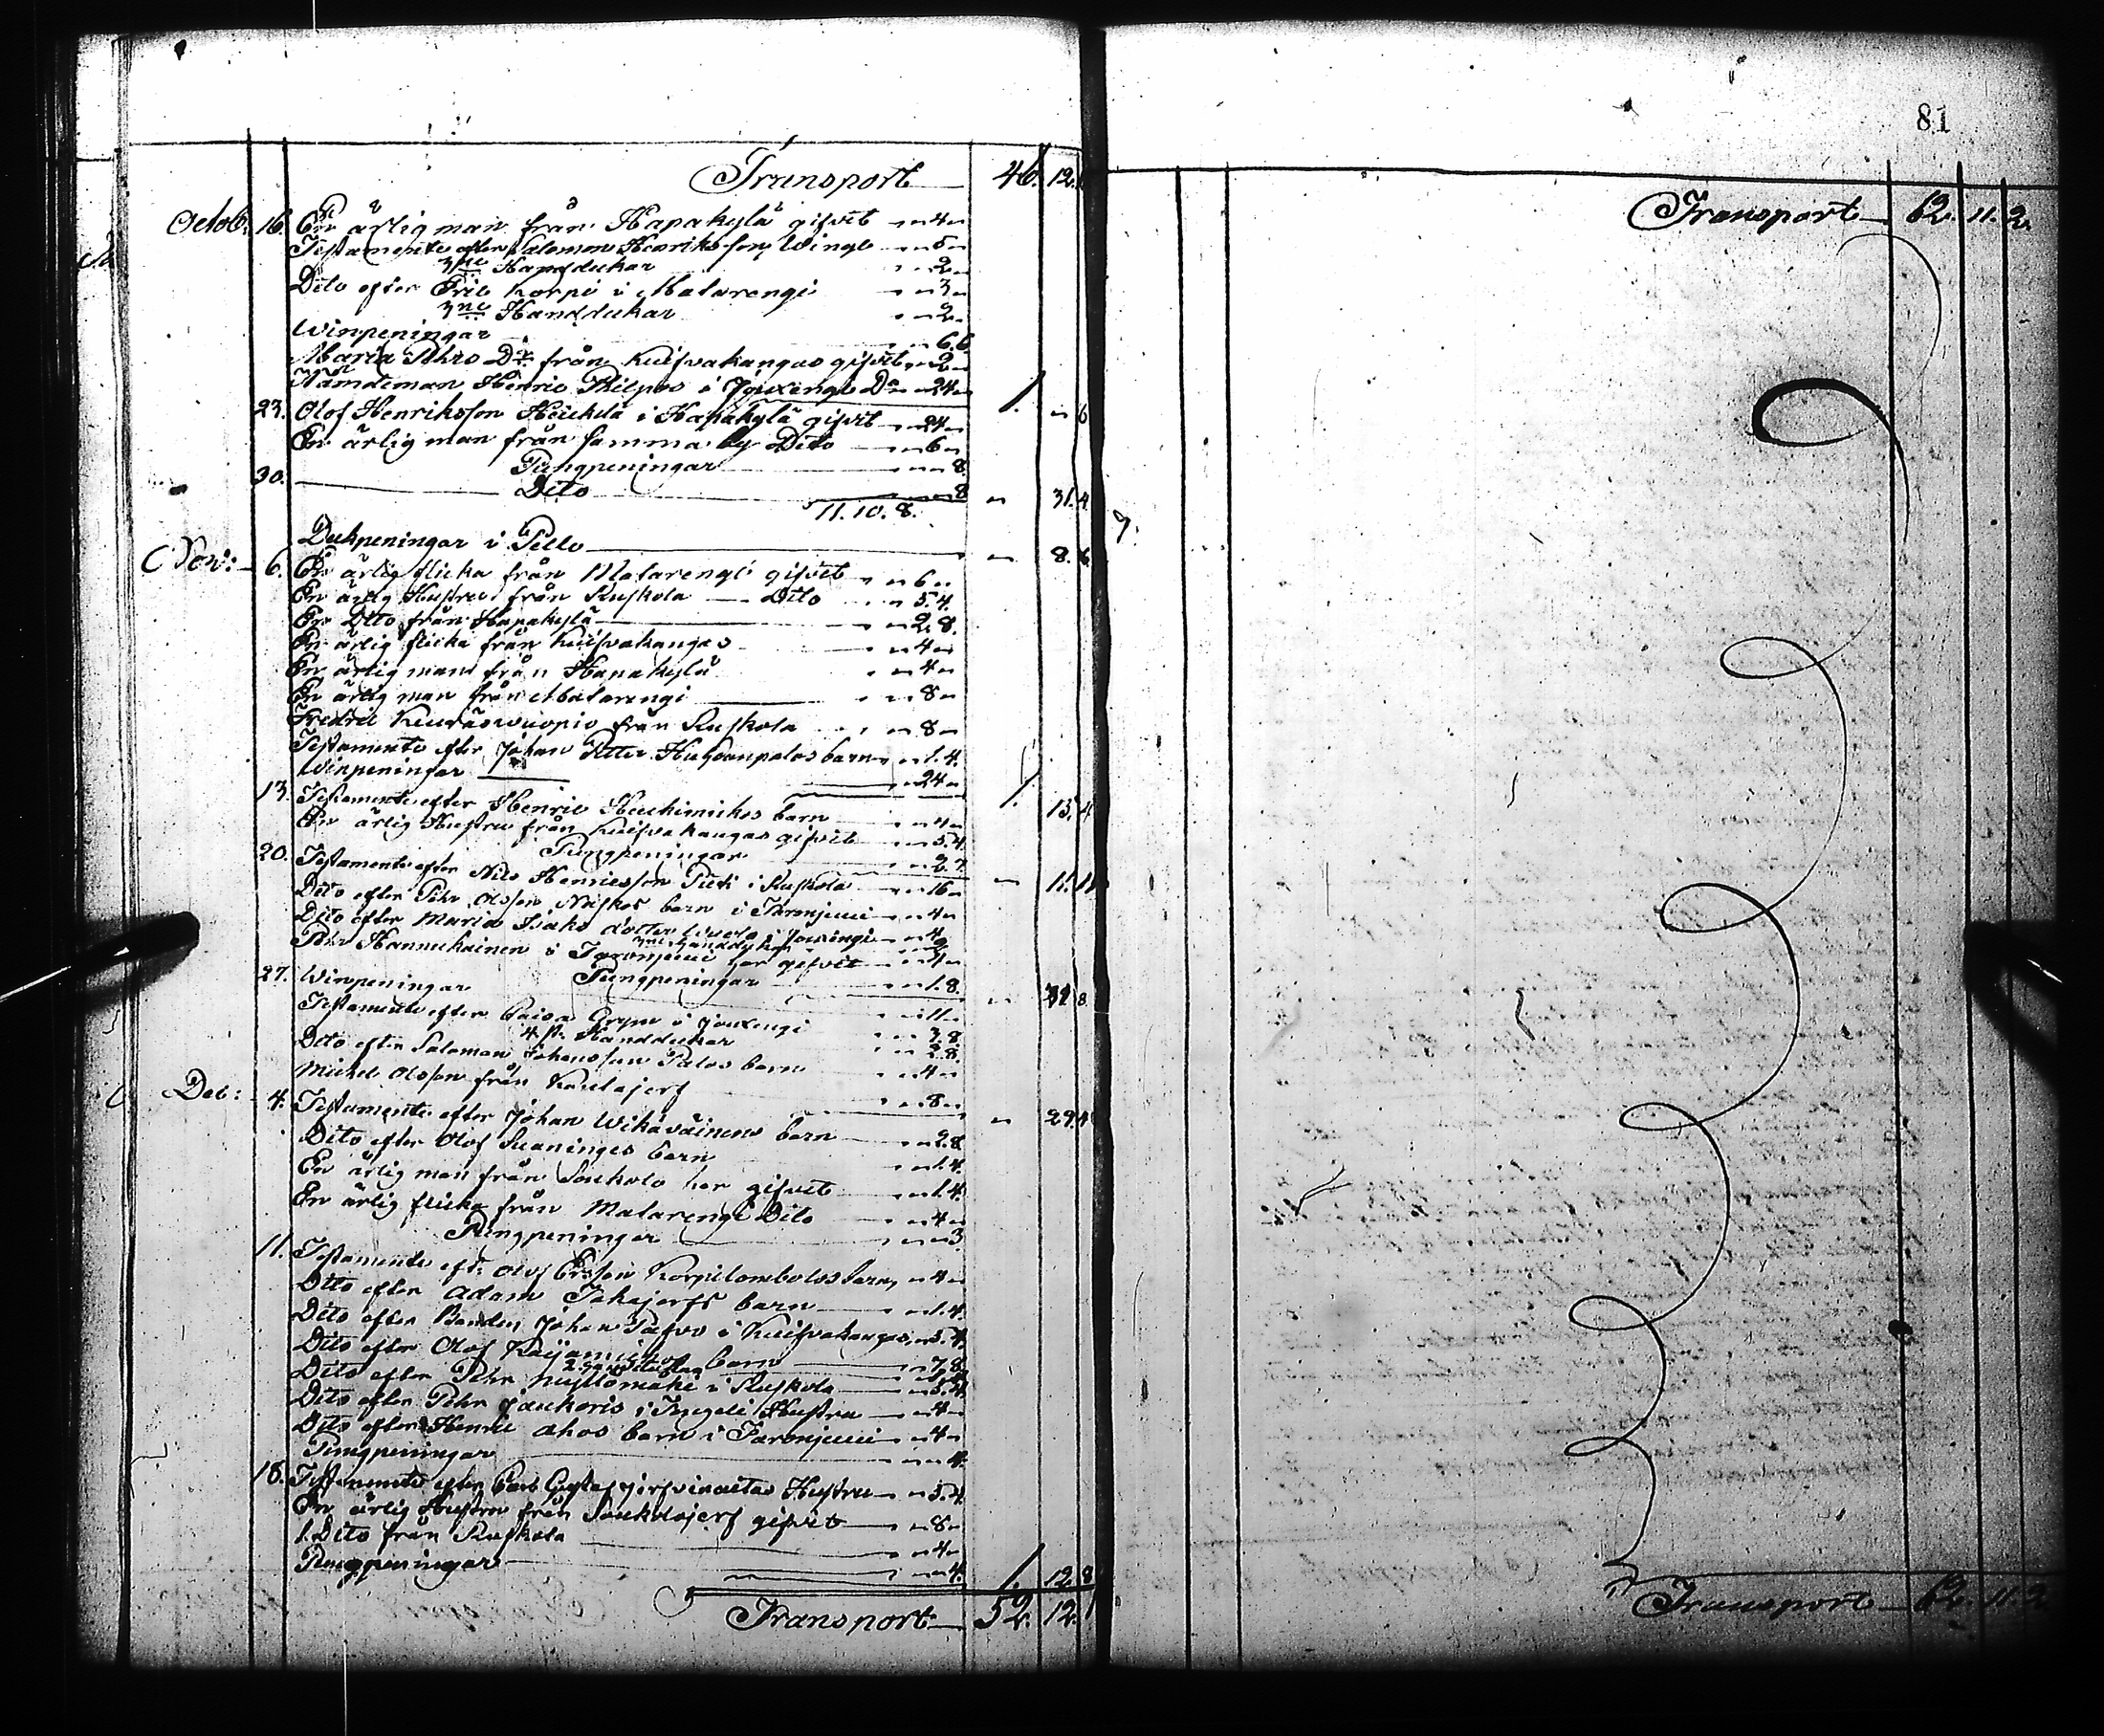 Transport 46. 12.
Octob: 16. En ärlig man från Hapakylä gifvit " 4 "
Testamente efter Salomon Henriksson Winge " 5 "
3ne Handdukar " 2 "
Dito efter Eric Korpi i Matarengi " 3 "
3ne Handdukar " 2 "
Winpeningar 6. 6.
Maria Pehrs Dr från Kuifvakangas gifvit " 2 "
Nämdeman Henric Philpus i Jouxengi Do " 24 " 1. " 6
23. Olof Henriksson Heikilä i Hapakylä gifvit " 24 "
En ärlig man från samma by Dito " 6 "
Pungpeningar " " 8.
30. Dito " " 8 " 31. 4
11. 10. 8.
Dukpeningar i Pello " 8. 6
Nov: 6. En ärlig flicka från Matarengi gifvit " 6 "
En ärlig Hustru från Ruskola Dito " 5. 4.
En Dito från Hapakylä " 2. 8.
En ärlig flicka från Kuifvakangas " 4 "
En ärlig man från Hapakylä " 4 "
En ärlig man från Matarengi " 8 "
Fredric från Ruskola " 8 "
Testamente efter Johan Petter barn " 1. 4.
Winpeningar " 24 " 1. 13. 4
13. Testamente efter Henric barn " 4 "
En ärlig Hustru från Kuifvakangas gifvit " 5. 4.
Pungpeningar " 2. 7. " 11. 11
20. Testamente efter Nils Henricsson i Ruskola " 16 "
Dito efter Pehr Olsson barn i Turonjemi " 4 "
Dito efter Maria Isaks dotter i Jouxengi " 4
3ne Handdukar
Pehr Hannukainen i har gifvit " 4 "
Pungpeningar " 1. 8. " 8
27. Winpeningar " 11 "
Testamente efter Caisa Grym i Jouxengi " 3. 8.
4 st. Handdukar " 2. 8.
Dito efter Salomon Johansson Palos barn " 4 "
Michel Olsson från " 8 " " 29. 4
Dec: 4. Testamente efter Johan Wikaväinens barn " 2. 8.
Dito efter Olof Suaninges barn " 1. 4.
En ärlig man från Soukolo har gifvit " 1. 4.
En ärlig flicka från Matarengi Dito " 4 "
Pungpeningar " " 3.
11. Testamente eftr Olof Ersson Korpilombolos barn " 4 "
Dito efter Adam barn " 1. 4.
Dito efter Bonden Johan i Kuifvakangas " 5. 4.
Dito efter Olof barn " 7. 8.
Dito efter Pehr Myllömäki i Ruskola " 5. 4.
Dito efter Pehr i Hustru " 4 "
Dito efter Henric Ahos barn i Turonjemi " 4 "
Pungpeningar " " 4.
18. Testamente efter Carl Gustaf Hustru " 5. 4.
En ärlig Hustru från gifvit " 8 "
1. Dito från Ruskola " 4 "
Pungpeningar " " 4. 1. 12. 8
Transport 52. 12. 1
81
Transport 62. 11. 2.
Transport 62. 11. 2